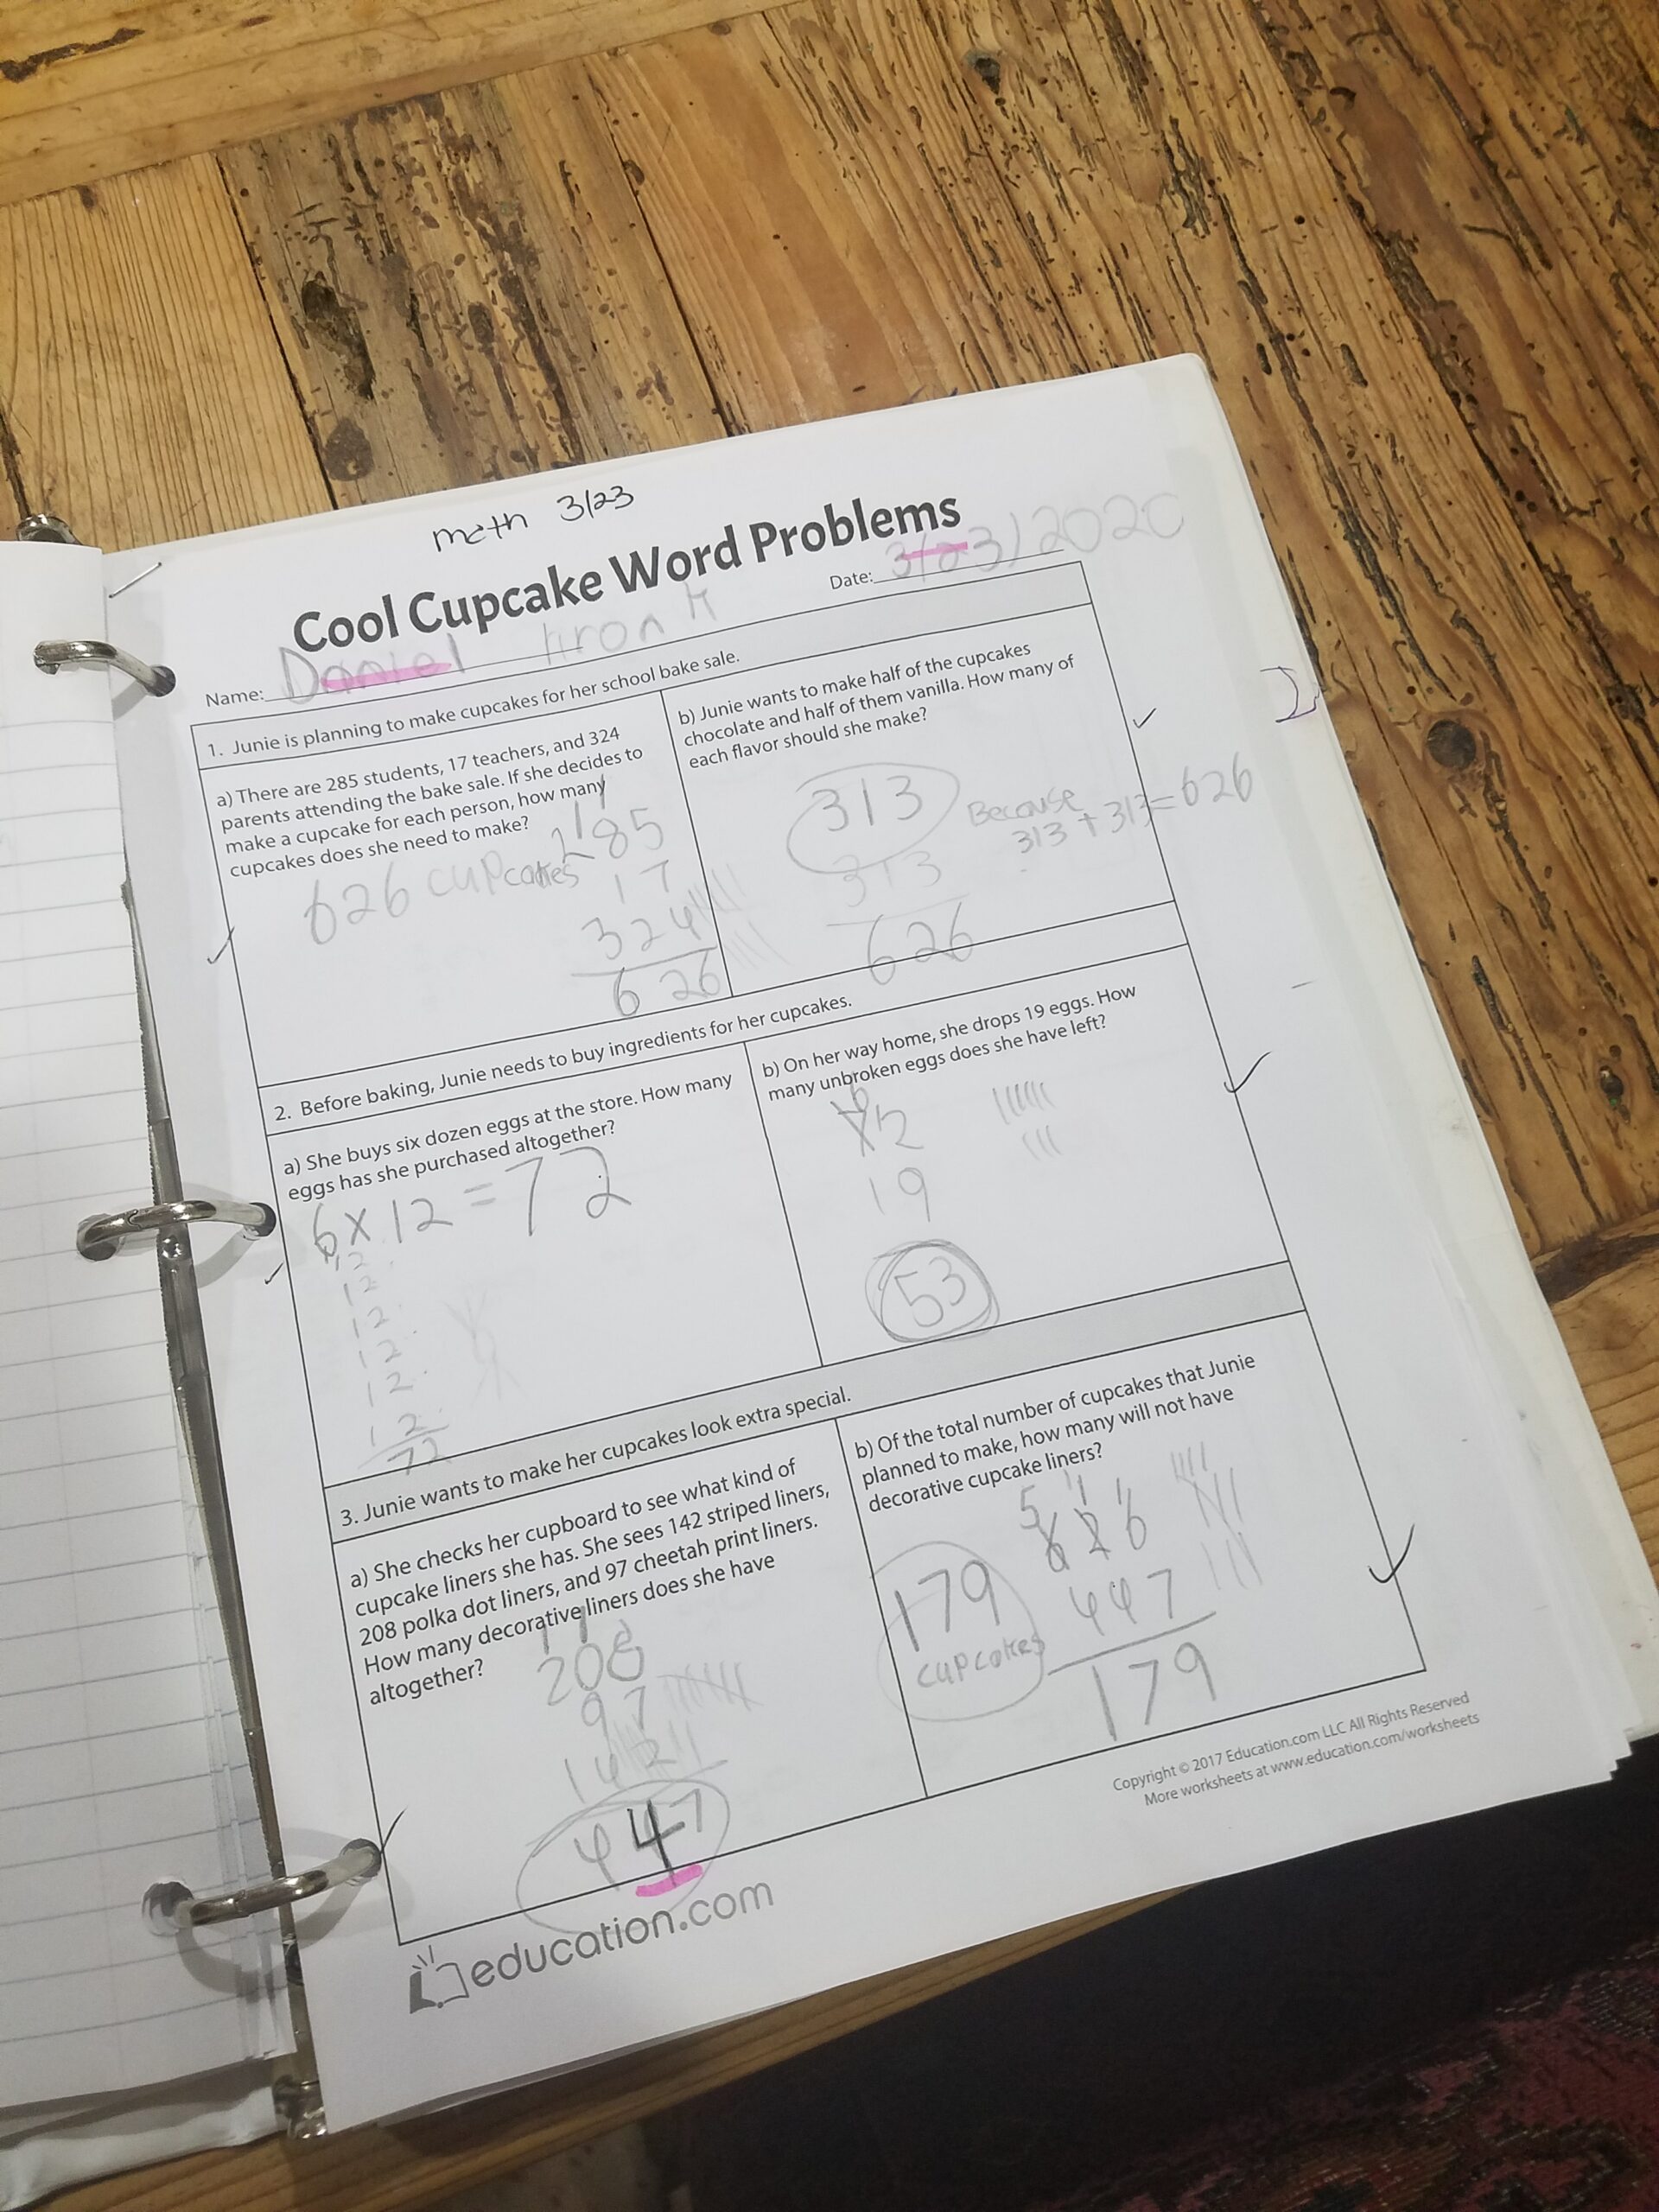 math 3/23
Cool Cupcake Word Problems
Name: Daniel
Date: 3/23/2020
1. Junie is planning to make cupcakes for her school bake sale.
a) There are 285 students, 17 teachers, and 324
parents attending the bake sale. If she decides to
make a cupcake for each person, how many
cupcakes does she need to make?
626 cupcakes
1 1
285
17
324
626
b) Junie wants to make half of the cupcakes
chocolate and half of them vanilla. How many of
each flavor should she make?
313
Because
313 + 313 = 626
313
626
2. Before baking, Junie needs to buy ingredients for her cupcakes.
a) She buys six dozen eggs at the store. How many
eggs has she purchased altogether?
6 x 12 = 72
12
12
12
12
12
12
72
b) On her way home, she drops 19 eggs. How
many unbroken eggs does she have left?
6
72
19
53
3. Junie wants to make her cupcakes look extra special.
a) She checks her cupboard to see what kind of
cupcake liners she has. She sees 142 striped liners,
208 polka dot liners, and 97 cheetah print liners.
How many decorative liners does she have
altogether?
1 1
208
97
142
447
b) Of the total number of cupcakes that Junie
planned to make, how many will not have
decorative cupcake liners?
5 11 1
626
447
179
179
cupcakes
education.com
Copyright © 2017 Education.com LLC All Rights Reserved
More worksheets at www.education.com/worksheets